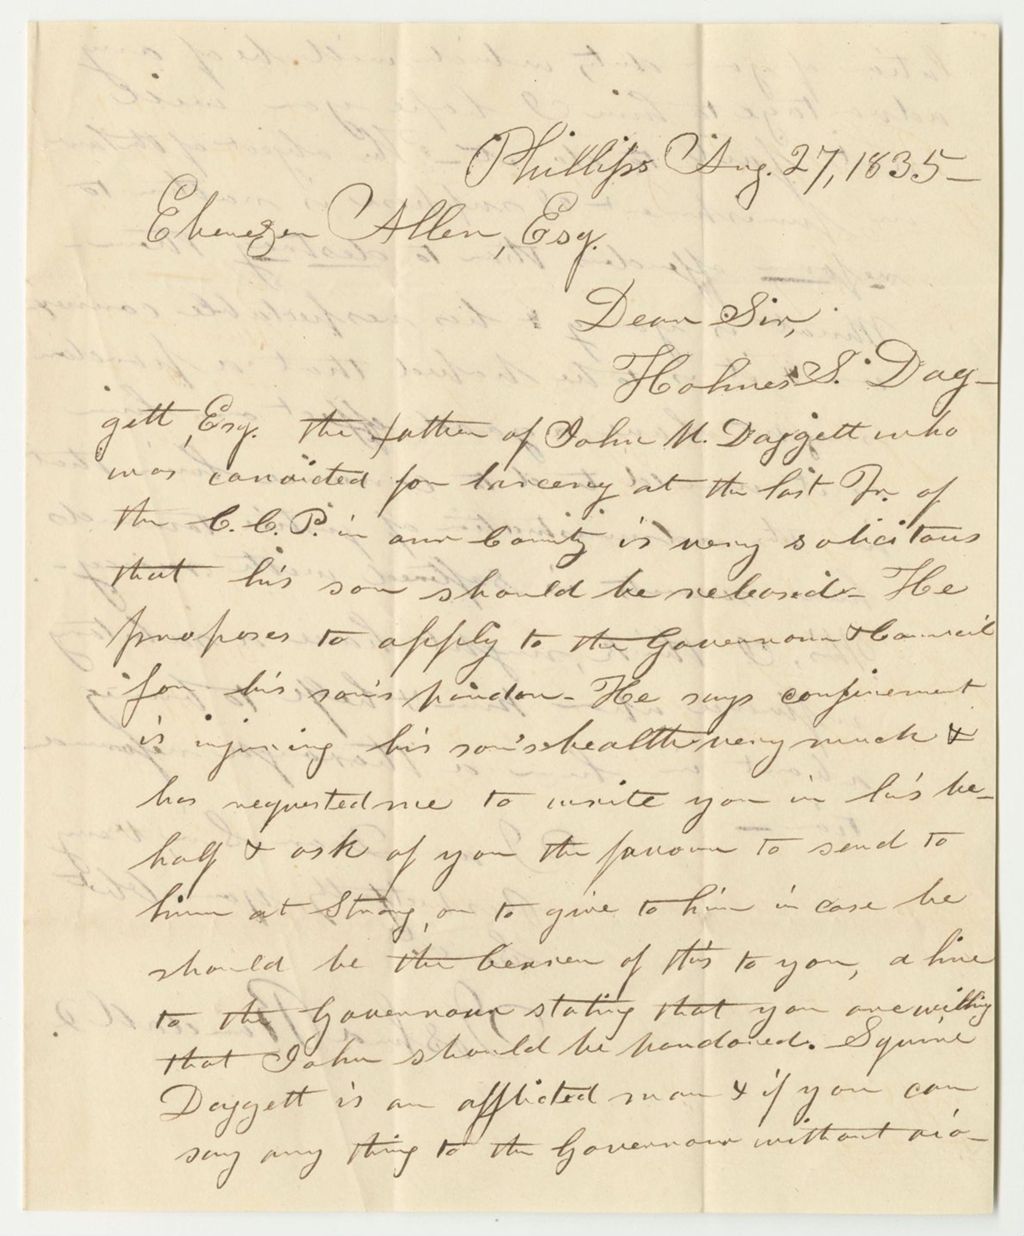 Phillips Aug. 27, 1835-
Ebenezer Allen, Esq.
Dear Sir,
Holmes S. Dag-
gett, Esq. the father of John M. Daggett who
was convicted for larceny at the last Tr. of
the C. C. P. in our County is very solicitous
that his son should be released- He
proposes to apply to the Governour & Council
for his son's pardon- He says confinement
is injuring his son's health very much &
has requested me to write you in his be-
half & ask of you the favour to send to
him at Strong, or to give to him in case he
should be the bearer of this to you, a line
to the Governour stating that you are willing
that John should be pardoned. Squire
Daggett is an afflicted man & if you can
say any thing to the Governour without vio-